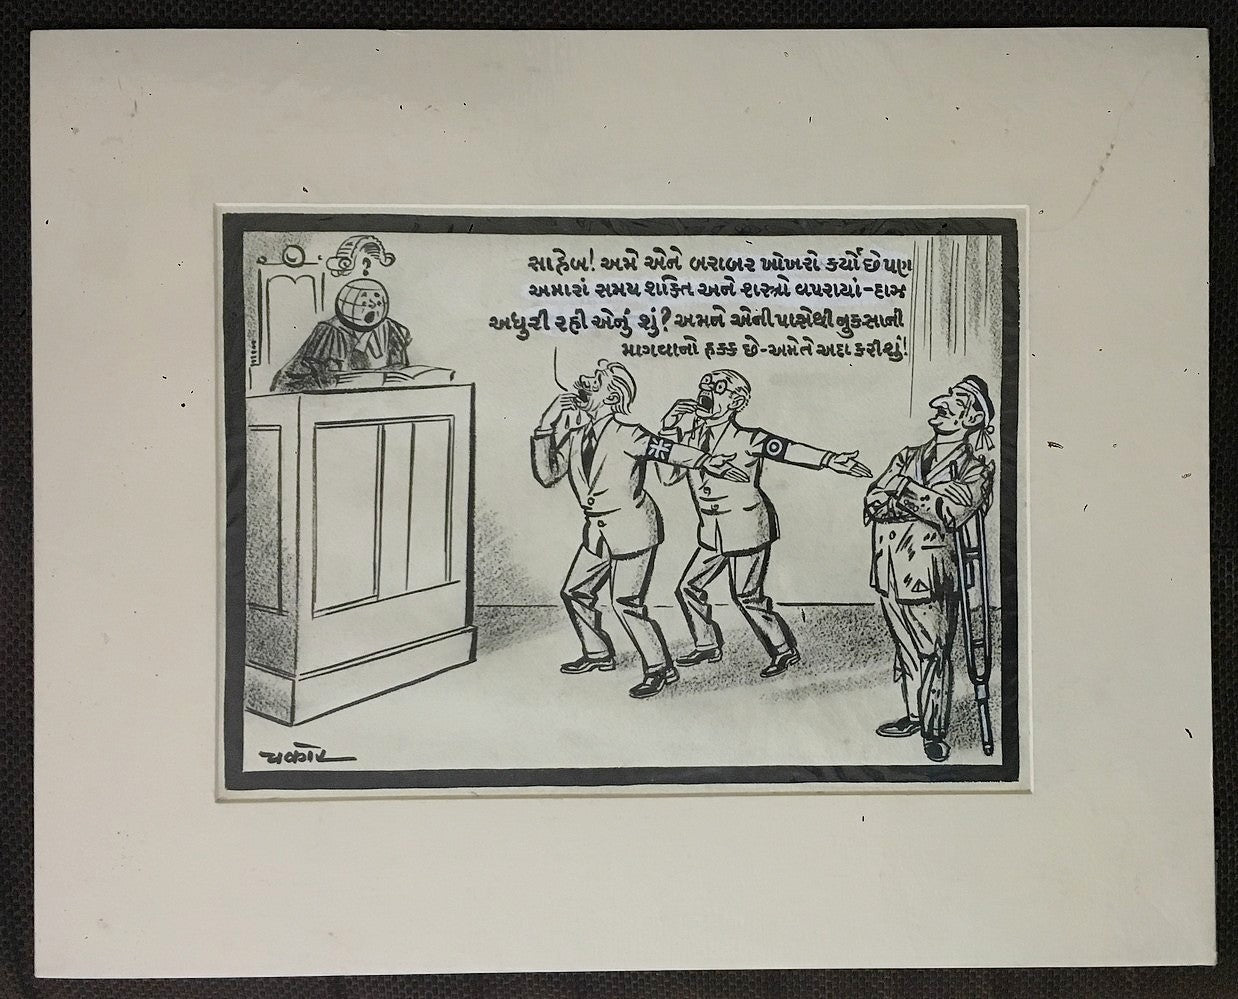 સાહેબ! અમે એને બરાબર ખોખરો કર્યો છે પણ
અમારાં સમય શક્તિ અને શસ્ત્રો વપરાયાં-દાઝ
અધુરી રહી એનું શું? અમને એની પાસેથી નુકસાની
માગવાનો હક્ક છે-અમે તે અદા કરીશું!
ચકોર